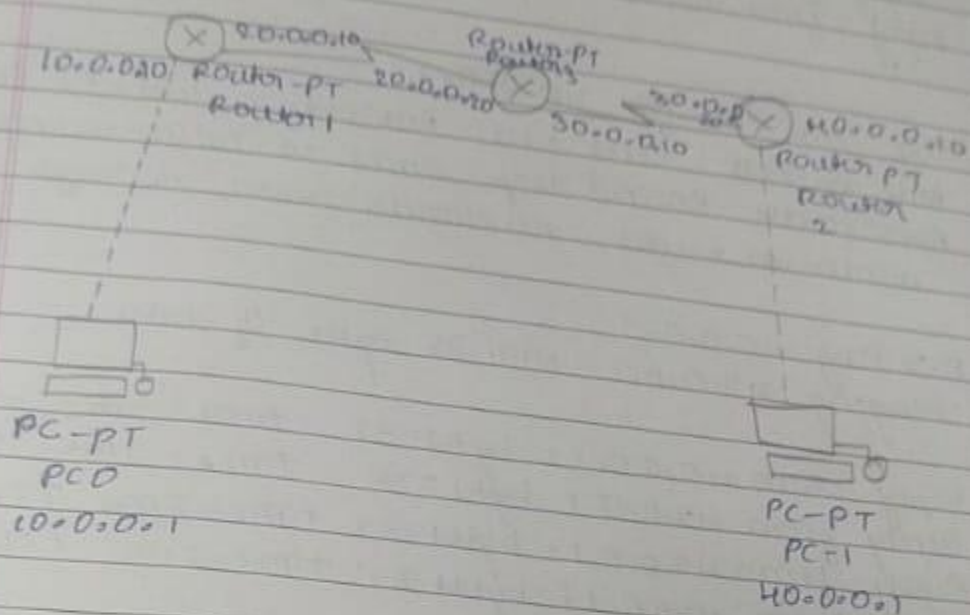 20.0.0.10
10.0.0.20
Router-PT
Router1
Router-PT
20.0.0.20
30.0.0.10
30.0.0.
40.0.0.10
Router PT
Router
2
PC-PT
PC0
10.0.0.1
PC-PT
PC-1
40.0.0.1